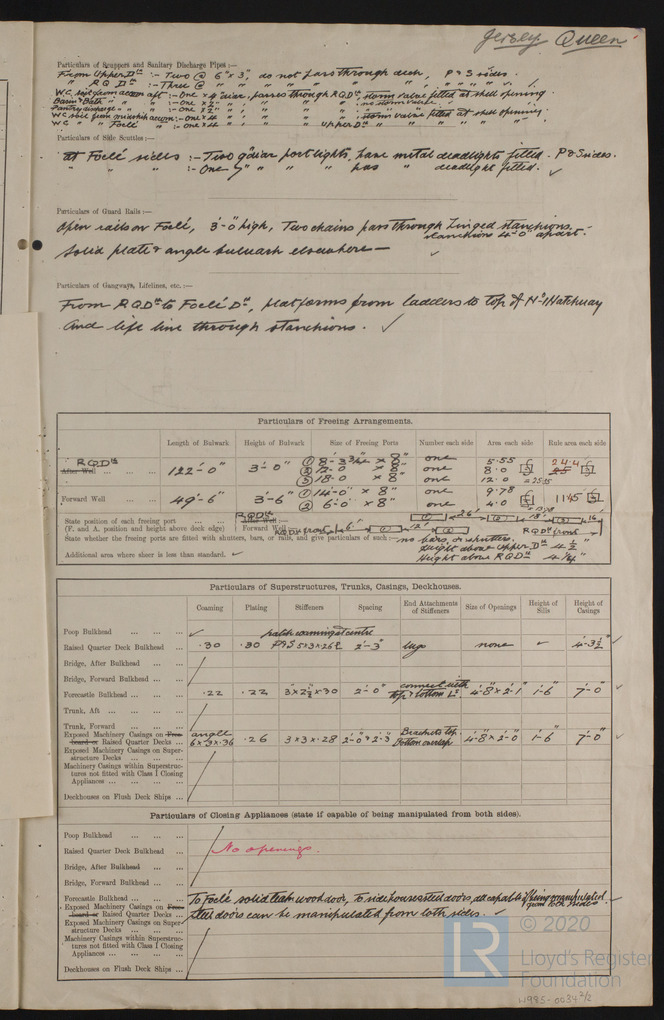 Jersey Queen
Particulars of Scuppers and Sanitary Discharge Pipes :—
From Upper Dk :- Two @ 6" x 3", do not pass through deck, P & S sides.
" R Q Dk :- Three @ " " " " " " " " " "
W.C. soil from accom aft :- One x 4" diar, passes through R.Q.Dk, storm valve fitted at shell opening.
Basin & Bath " " " :- one x 2" " " " " , no storm valve.
Pantry discharge " " " :- one x 2" " " " "
W.C. soil from midship accom :- one x 4 " " " " , storm valve fitted at shell opening.
W.C. " " Foclé " :- one x 4 " " " Upper Dk " " " " "
Particulars of Side Scuttles :—
At Foclé sides :- Two 9" diar port lights, have metal deadlights fitted. P & S sides.
" " " :- One " " " " has " deadlight fitted. ✓
Particulars of Guard Rails :—
Open rails on Foclé, 3'-0" high, Two chains pass through hinged stanchions,
stanchions 4'-0" apart.
Solid plate & angle bulwark elsewhere — ✓
Particulars of Gangways, Lifelines, etc. :—
From R Q Dk to Foclé Dk, platforms from ladders to top of No 1 Hatchway
and life line through stanchions. ✓
Particulars of Freeing Arrangements.
Length of Bulwark Height of Bulwark Size of Freeing Ports Number each side Area each side Rule area each side
R Q Dk
After Well ... ... ... 122'-0" 3'-0" ① 8'-3¾" x 8" one 5.55 24.4
② 12'-0 x 8" one 8.0 25
③ 18'-0 x 8" one 12.0 = 25.55
Forward Well ... ... 49'-6" 3'-6" ① 14'-0" x 8" one 9.78 11.45
② 6'-0" x 8" one 4.0 = 13.78
State position of each freeing port ... ... ... RQDk After Well
(F. and A. position and height above deck edge) Forward Well RQDk front 6' ① 12' ②
State whether the freeing ports are fitted with shutters, bars, or rails, and give particulars of such :— no bars, or shutters. RQDk front
Height above Upper Dk 4½"
Additional area where sheer is less than standard. ✓
Height above RQDk 4¼"
Particulars of Superstructures, Trunks, Casings, Deckhouses.
Coaming Plating Stiffeners Spacing End Attachments of Stiffeners Size of Openings Height of Sills Height of Casings
Poop Bulkhead ... ... ... ✓
Raised Quarter Deck Bulkhead ... .30 .30 P&S 5x3x26 2'-3" lugs none ✓ 4'-3½" ✓
Bridge, After Bulkhead ... ...
Bridge, Forward Bulkhead ... ...
Forecastle Bulkhead ... ... ... .22 .22 3"x2½"x.30 2'-0" connect with top & bottom Ls 4'-8"x2'-1" 1'-6" 7'-0" ✓
Trunk, Aft ... ... ... ...
Trunk, Forward ... ... ...
Exposed Machinery Casings on Free-
board or Raised Quarter Decks ... angle 6x3x.36 .26 3x3x.28 2'-0" & 2'-3" Brackets top. Bottom overlap 4'-8"x2'-0" 1'-6" 7'-0" ✓
Exposed Machinery Casings on Super-
structure Decks ... ... ...
Machinery Casings within Superstruc-
tures not fitted with Class I Closing
Appliances ... ... ... ...
Deckhouses on Flush Deck Ships ...
Particulars of Closing Appliances (state if capable of being manipulated from both sides).
Poop Bulkhead ... ... ...
Raised Quarter Deck Bulkhead ... No openings.
Bridge, After Bulkhead ... ...
Bridge, Forward Bulkhead ... ...
Forecastle Bulkhead ... ... ... To Foclé solid teak wood door, To side houses steel doors, all capable of being manipulated from both sides ✓
Exposed Machinery Casings on Free-
board or Raised Quarter Decks ... Steel doors can be manipulated from both sides. ✓
Exposed Machinery Casings on Super-
structure Decks ... ... ...
Machinery Casings within Superstruc-
tures not fitted with Class I Closing
Appliances ... ... ... ...
Deckhouses on Flush Deck Ships ...
© 2020
LR
Lloyd's Register
Foundation
W985-0034 2/2